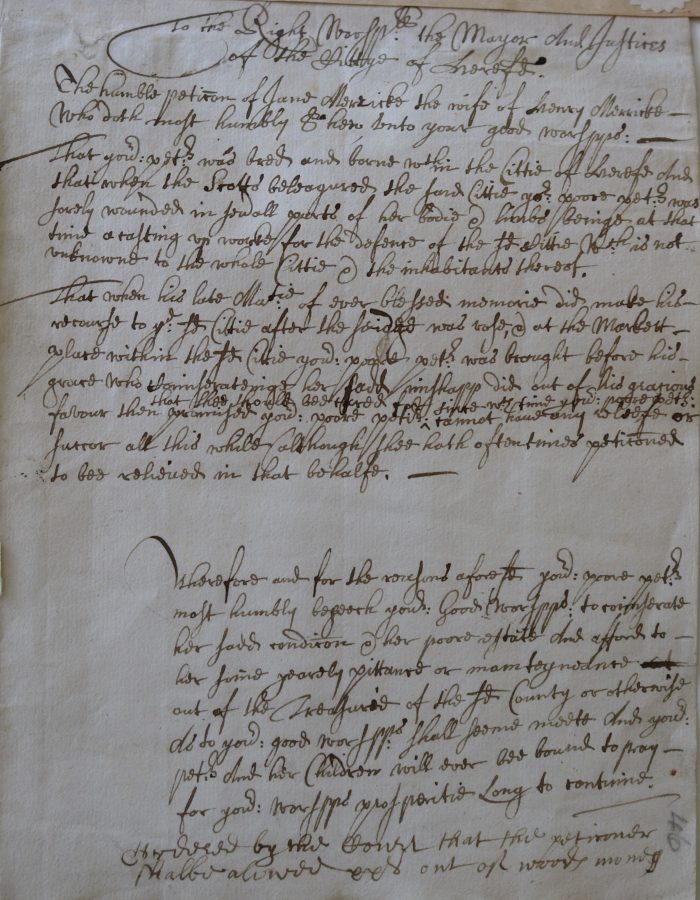 To the Right Worspp:ll the Mayor And Justices
of the Cittye of Herefe:
The humble petic̄on of Jane Merricke the wife of Henry Merricke
Who doth most humbly Shew unto your good worspps:
That you:r pet:r was bred and borne w:thin the Cittie of Herefe And
that when the Scotts beleagured the said Cittie yo:r poore pet:r was
sorely wounded in seu'all parts of her bodie & limbs beinge at that
time a casting up worke for the defence of the sd Cittie W:ch is not
unknowne to the whole Cittie & the inhabitants thereof.
That when his late Ma:tie of ever blessed memorie did make his
recourse to y:r sd Cittie after the seidge was rose, & at the Markett
place within the sd Citie you:r poore pet:r was brought before his
grace who Coinseratinge her sadd mishapp did out of his gracious
that shee should bee cured & since w:ch time you:r poore pet:r
favour then promised you:r poore pet:r cannot have any releefe or
succor all this while although shee hath oftentimes petic̄oned
to bee relieved in that behalfe.
Therefore and for the reasons aforesd you:r poore pet:r
most humbly beseech you:r Good Worspps: to coinserate
her sadd condic̄on & her poore estate And afford to
her some yearely pittance or mainteyneance
out of the Treasurie of the sd County or otherwise
As to you:r good worspps: shall seeme meete And you:r
pet:r And her Children will ever bee bound to pray
for you:r Worspps prosperitie Long to continue.
Ordered by the Court that the peticoner
shalbe alowed xxs out of woods money
46